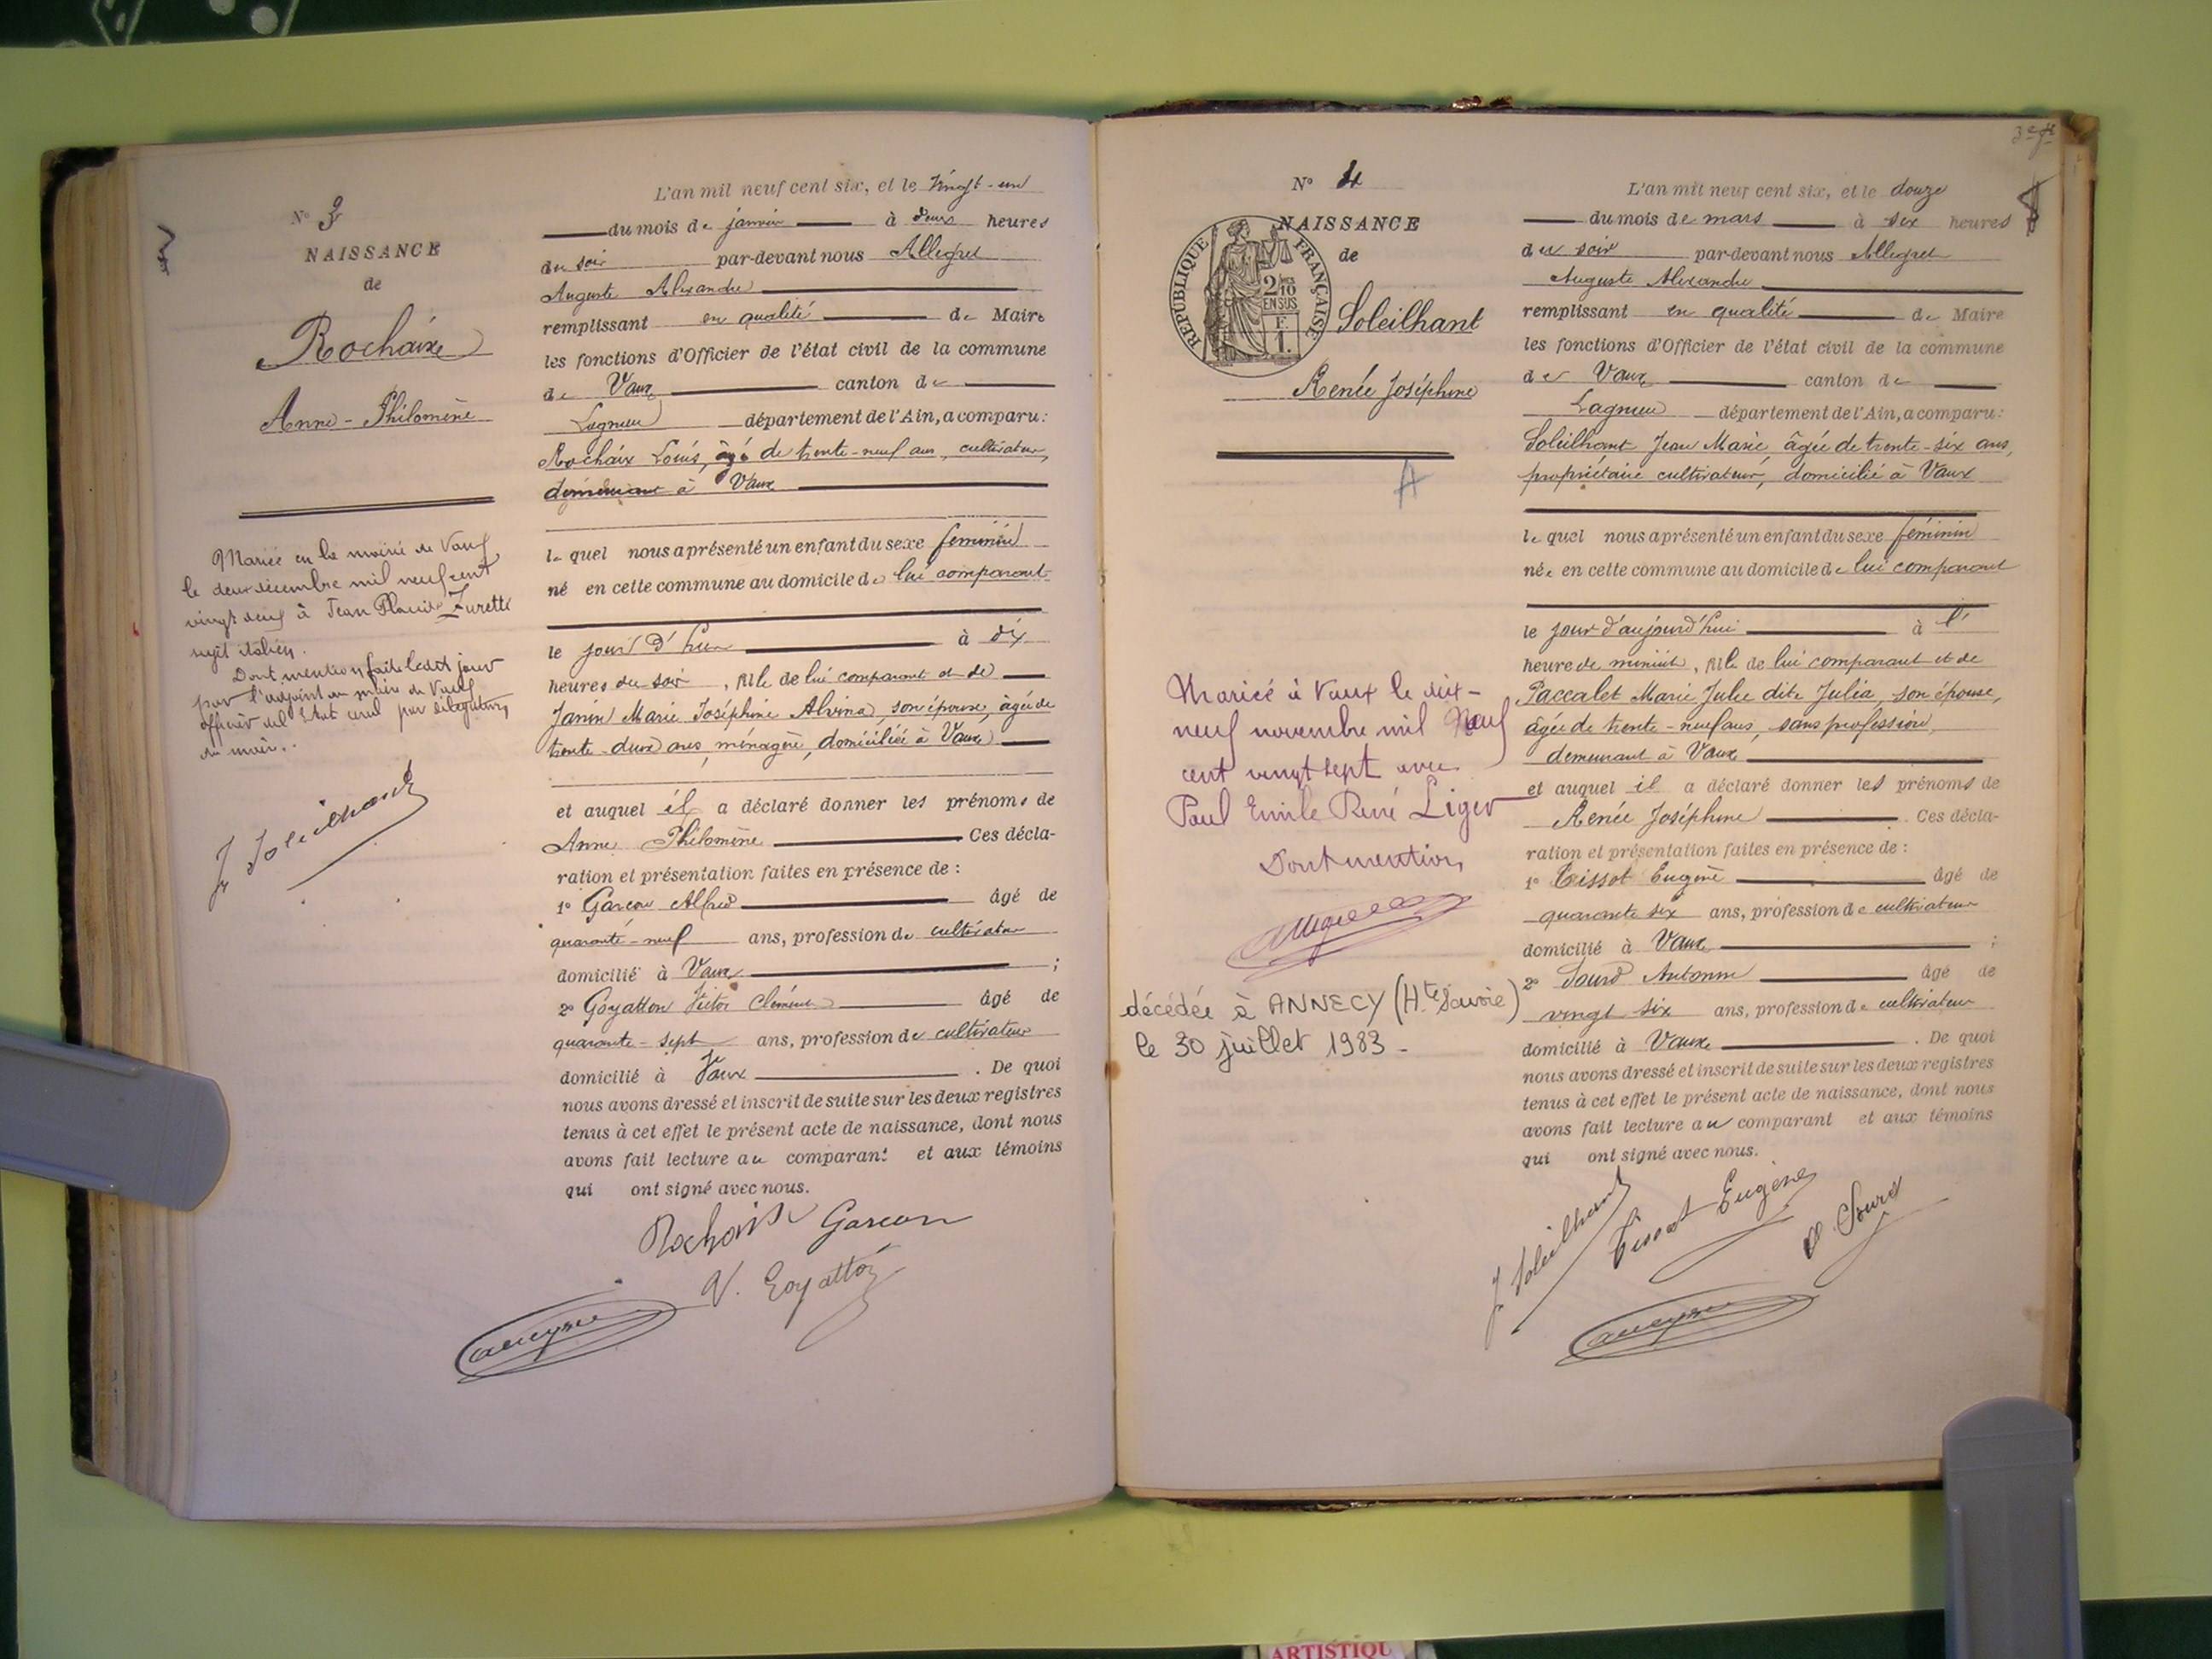 N° 3
NAISSANCE
de
Rochaix
Anne-Philomène
Mariée en la mairie de Vaux
le deux décembre mil neuf cent
vingt neuf à Jean Placide Zuretti
sujet italien.
Dont mention faite ledit jour
par l'adjoint au maire de Vaux
officier de l'Etat civil par délégation
du maire.
J Soleilhant
L'an mil neuf cent six, et le vingt-un
du mois de janvier à heures
du soir par-devant nous Allegret
Auguste Alexandre
remplissant en qualité de Maire
les fonctions d'Officier de l'état civil de la commune
de Vaux canton de
Lagnieu département de l'Ain, a comparu:
Rochaix Louis, âgé de trente-neuf ans, cultivateur,
à Vaux
le quel nous a présenté un enfant du sexe féminin
né en cette commune au domicile de lui comparant
le jour d'hier à dix
heures du soir, fille de lui comparant et de
Janin Marie Joséphine Alvina, son épouse, âgée de
trente-deux ans, ménagère, domiciliée à Vaux
et auquel il a déclaré donner les prénoms de
Anne Philomène Ces décla-
ration et présentation faites en présence de :
1° Garcon Alfred âgé de
quarante-neuf ans, profession de cultivateur
domicilié à Vaux ;
2° Goyatton Victor Clément âgé de
quarante-sept ans, profession de cultivateur
domicilié à Vaux . De quoi
nous avons dressé et inscrit de suite sur les deux registres
tenus à cet effet le présent acte de naissance, dont nous
avons fait lecture au comparant et aux témoins
qui ont signé avec nous.
Rochaix Garcon
V. Goyatton
3e f
N° 4
NAISSANCE
de
RÉPUBLIQUE FRANÇAISE
2/10
EN SUS
F.
1.
Soleilhant
Renée Joséphine
A
Mariée à Vaux le dix-
neuf novembre mil neuf
cent vingt sept avec
Paul Emile René Liger
Dont mention,
décédée à ANNECY (Hte Savoie)
le 30 juillet 1983 -
L'an mil neuf cent six, et le douze
du mois de mars à six heures
du soir par-devant nous Allegret
Auguste Alexandre
remplissant en qualité de Maire
les fonctions d'Officier de l'état civil de la commune
de Vaux canton de
Lagnieu département de l'Ain, a comparu:
Soleilhant Jean Marie, âgée de trente-six ans,
propriétaire cultivateur, domicilié à Vaux
le quel nous a présenté un enfant du sexe féminin
née en cette commune au domicile de lui comparant
le jour d'aujourd'hui à l'
heure de minuit, fille de lui comparant et de
Paccalet Marie Julie dite Julia, son épouse,
âgée de trente-neuf ans, sans profession,
demeurant à Vaux
et auquel il a déclaré donner les prénoms de
Renée Joséphine . Ces décla-
ration et présentation faites en présence de :
1° Tissot Eugène âgé de
quarante six ans, profession de cultivateur
domicilié à Vaux ;
2° Sourd Antonin âgé de
vingt six ans, profession de cultivateur
domicilié à Vaux . De quoi
nous avons dressé et inscrit de suite sur les deux registres
tenus à cet effet le présent acte de naissance, dont nous
avons fait lecture au comparant et aux témoins
qui ont signé avec nous.
J Soleilhant Tissot Eugène A Sourd
ARTISTIQU